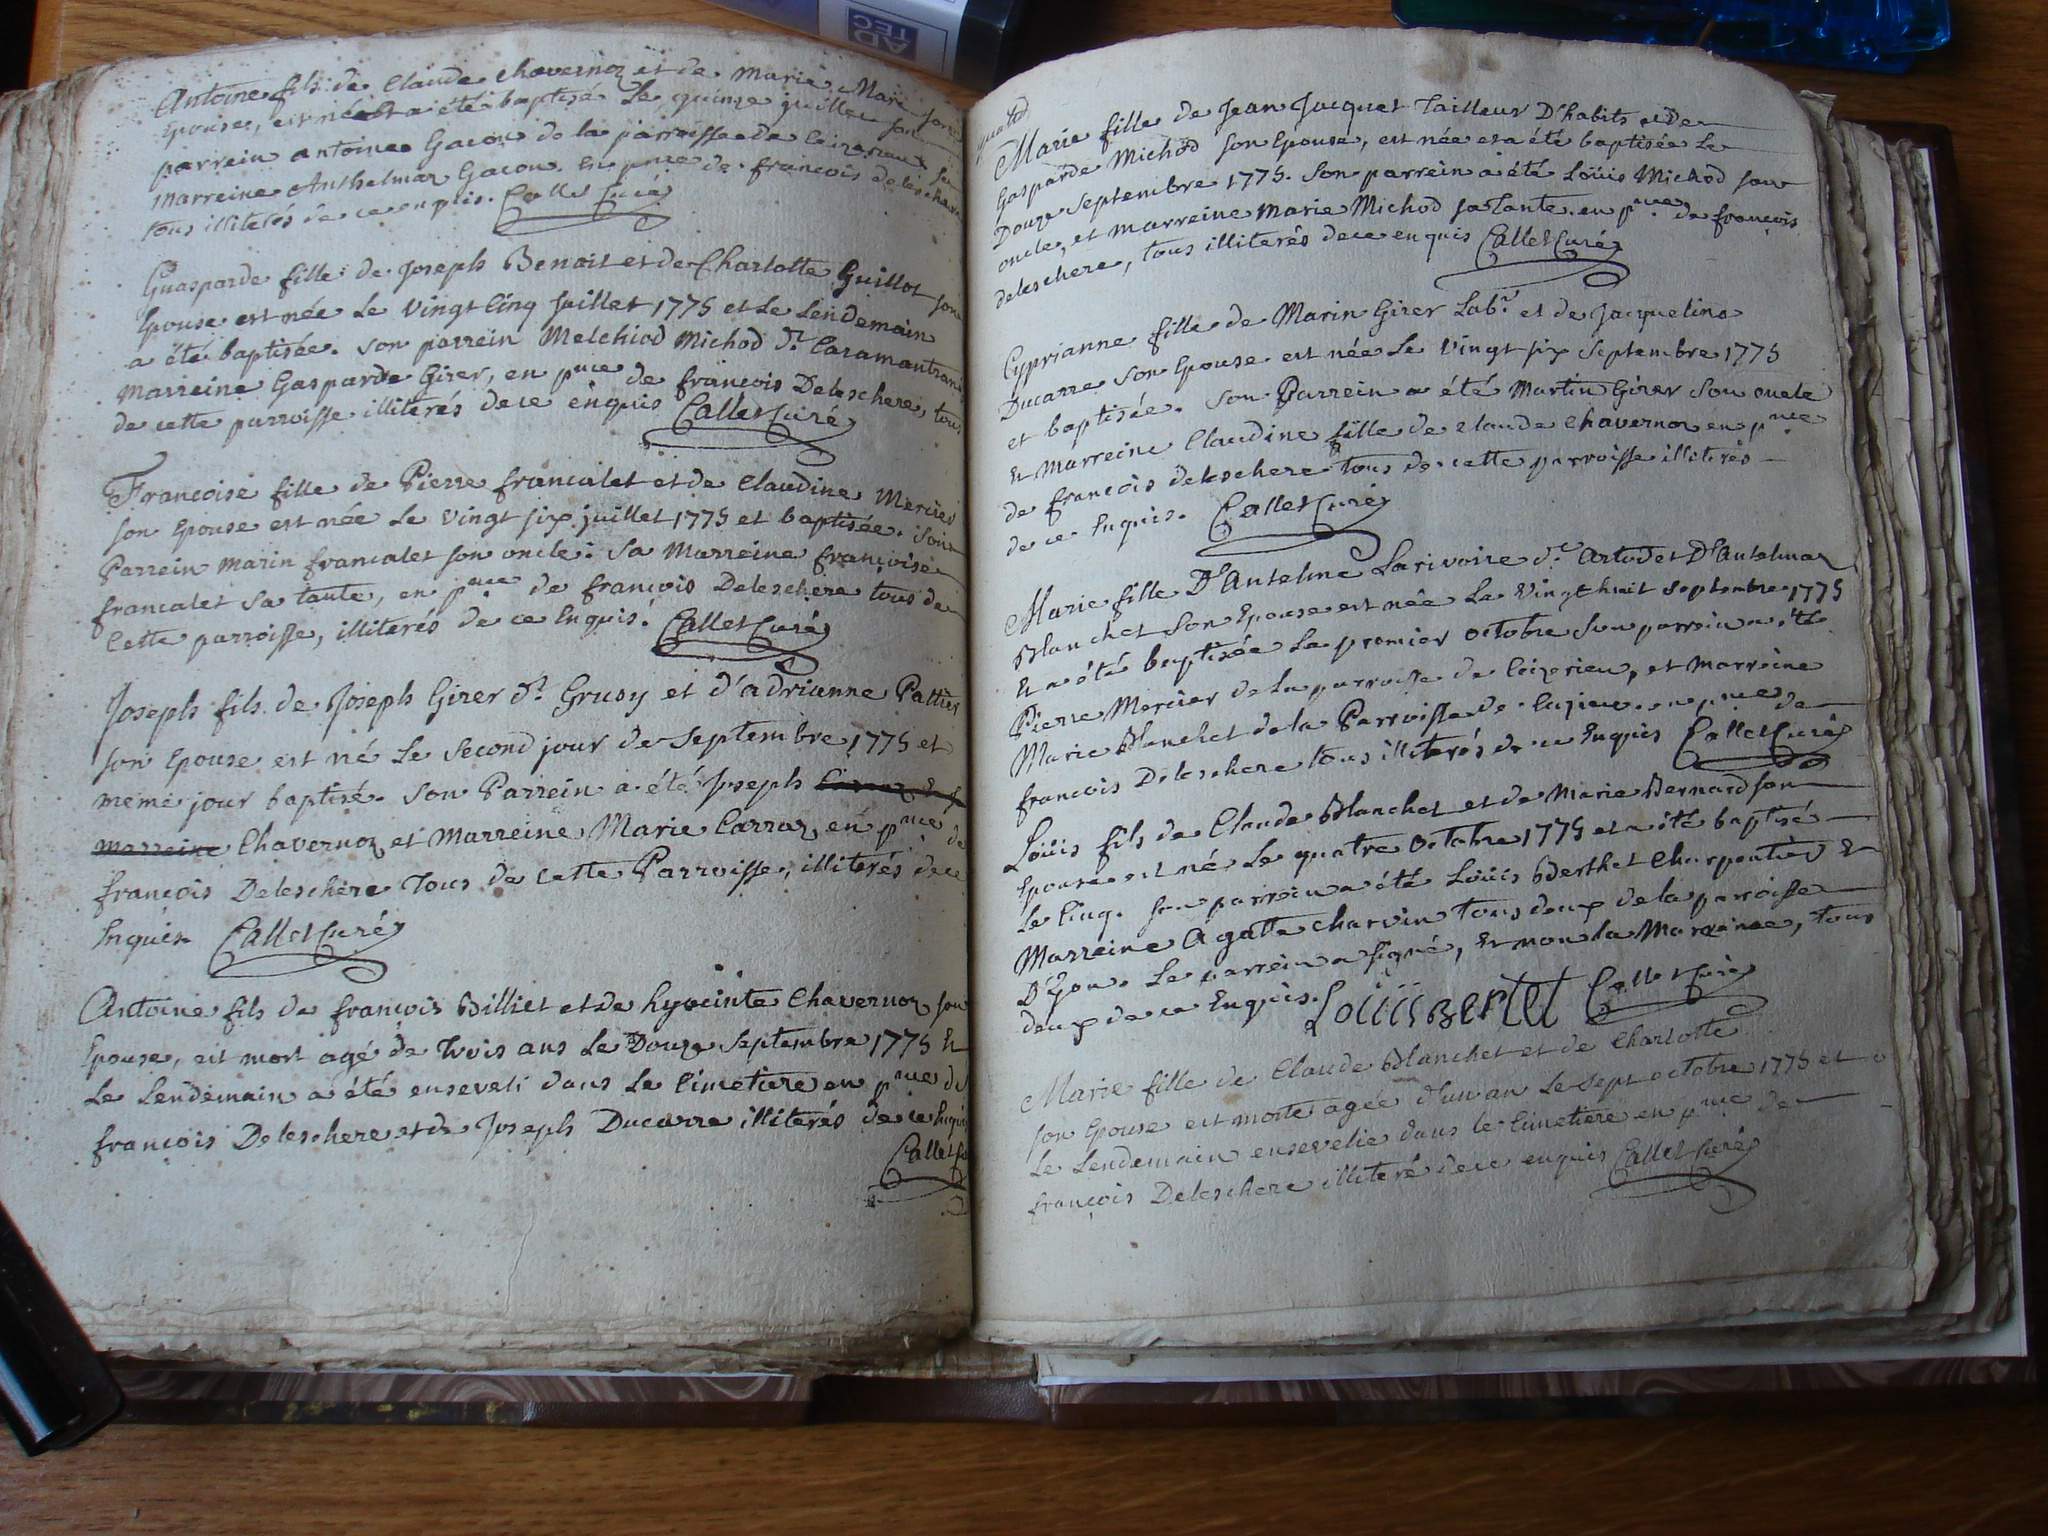 AD
TEC
Antoine fils de Claude Chavernoz et de Marie
Epouse, est né et a été baptisé Le quinze juillet son
parrein antoine Gacon de la parroisse de
marreine Anthelmaz Gacon. En pnce de francois deleschere
tous illiterés de ce enquis. Callet Curé
Guasparde fille de Joseph Benoit et de Charlotte Guillot son
Epouse est née Le Vingt Cinq Juillet 1775 et Le Lendemain
a été baptisée. son parrein Melchiod Michod dt Caramantran
Marreine Gasparde Girer, en pnce de francois Deleschere, tous
de cette parroisse illiterés de ce enquis Callet Curé
Francoise fille de Pierre francalet et de Claudine Mercier
son Epouse est née Le vingt six juillet 1775 et baptisée. Son
Parrein Marin francalet son oncle: Sa Marreine francoise
francalet sa tante, en pnce de francois Deleschere tous de
Cette parroisse, illiterés de ce Enquis. Callet Curé
Joseph fils de Joseph Girer dt Grusy et d'adrianne Pattier
son Epouse est né Le Second jour de Septembre 1775 et
meme jour baptisé. Son Parrein a été Joseph
marreine Chavernoz et Marreine Marie Carraz, en pnce de
francois Deleschere Tous de cette Parroisse, illiterés de ce
Enquis. Callet Curé
Antoine fils de francois Billiet et de hyacinte Chavernoz son
Epouse, est mort agé de trois ans Le Douze Septembre 1775 Et
Le Lendemain a été enseveli dans Le Cimetiere en pnce de
francois Deleschere et de Joseph Ducarre illiterés de ce Enquis
Callet
Marie fille de Jean Jacquet Tailleur D'habits et de
Gasparde Michod son Epouse, est née et a été baptisée Le
Douze Septembre 1775. Son parrein a été Loüis Michod son
oncle, et marreine Marie Michod sa Tante. en pnce de francois
deleschere, tous illiterés de ce enquis Callet Curé
Cyprianne fille de Marin Girer Labr et de Jacqueline
Ducarre son Epouse est née Le Vingt six Septembre 1775
et baptisée. Son Parrein a été Martin Girer Son oncle
Et Marreine Claudine fille de Claude Chavernoz en pnce
de francois deleschere tous de cette parroisse illiterés
de ce Enquis. Callet Curé
Marie fille D'Antelme Larivoire dt Artod et D'Antelmaz
Blanchet Son Epouse est née Le Vingt huit Septembre 1775
Et a été baptisée Le premier octobre Son parrein a été
Pierre Mercier de la parroisse de Ceizerieu, et Marreine
Marie Blanchet de la Parroisse de Cuzieu. en pnce de
francois Deleschere tous illiterés de ce Enquis Callet Curé
Loüis fils de Claude Blanchet et de Marie Bernard son
Epouse est né Le quatre Octobre 1775 et a été baptisé
Le Cinq. Son parrein a été Loüis Berthet Charpentier Et
Marreine Agatte Charvin tous deux de la parroisse
D'Yon. Le parrein a signé, Et non la Marreine, tous
deux de ce Enquis. Loüis Bertet Callet Curé
Marie fille de Claude Blanchet et de Charlotte
son Epouse est morte agée d'un an Le Sept octobre 1775 et
Le Lendemain ensevelie dans Le Cimetiere en pnce de
francois Deleschere illiteré de ce enquis Callet Curé